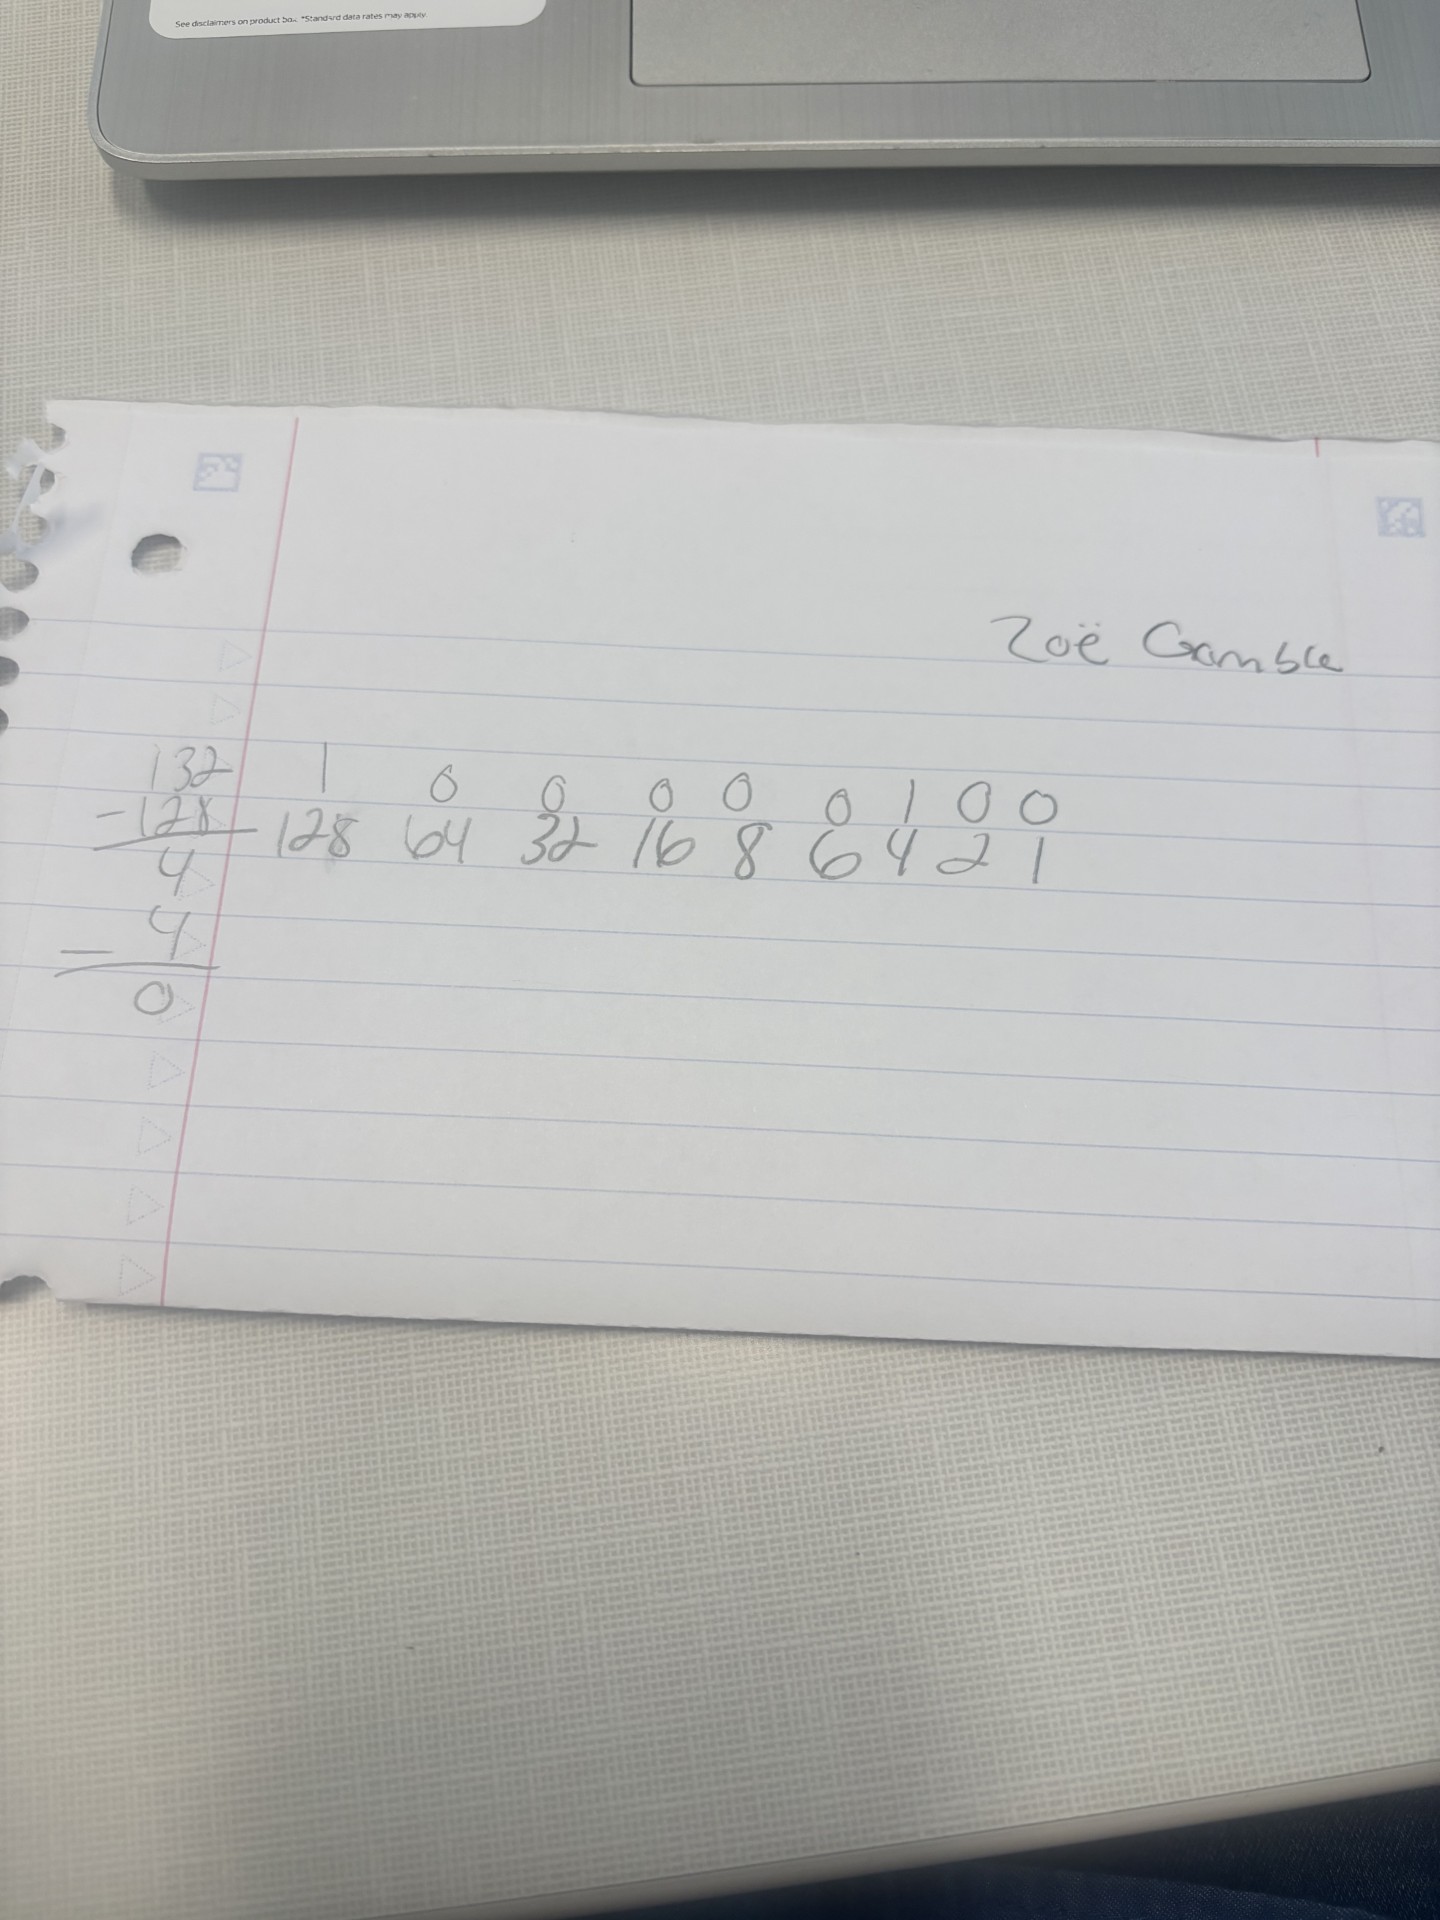 See disclaimers on product box. *Standard data rates may apply.
Zoë Gamble
132 1 0 0 0 0 0 1 0 0
-128 128 64 32 16 8 6 4 2 1
4
- 4
0